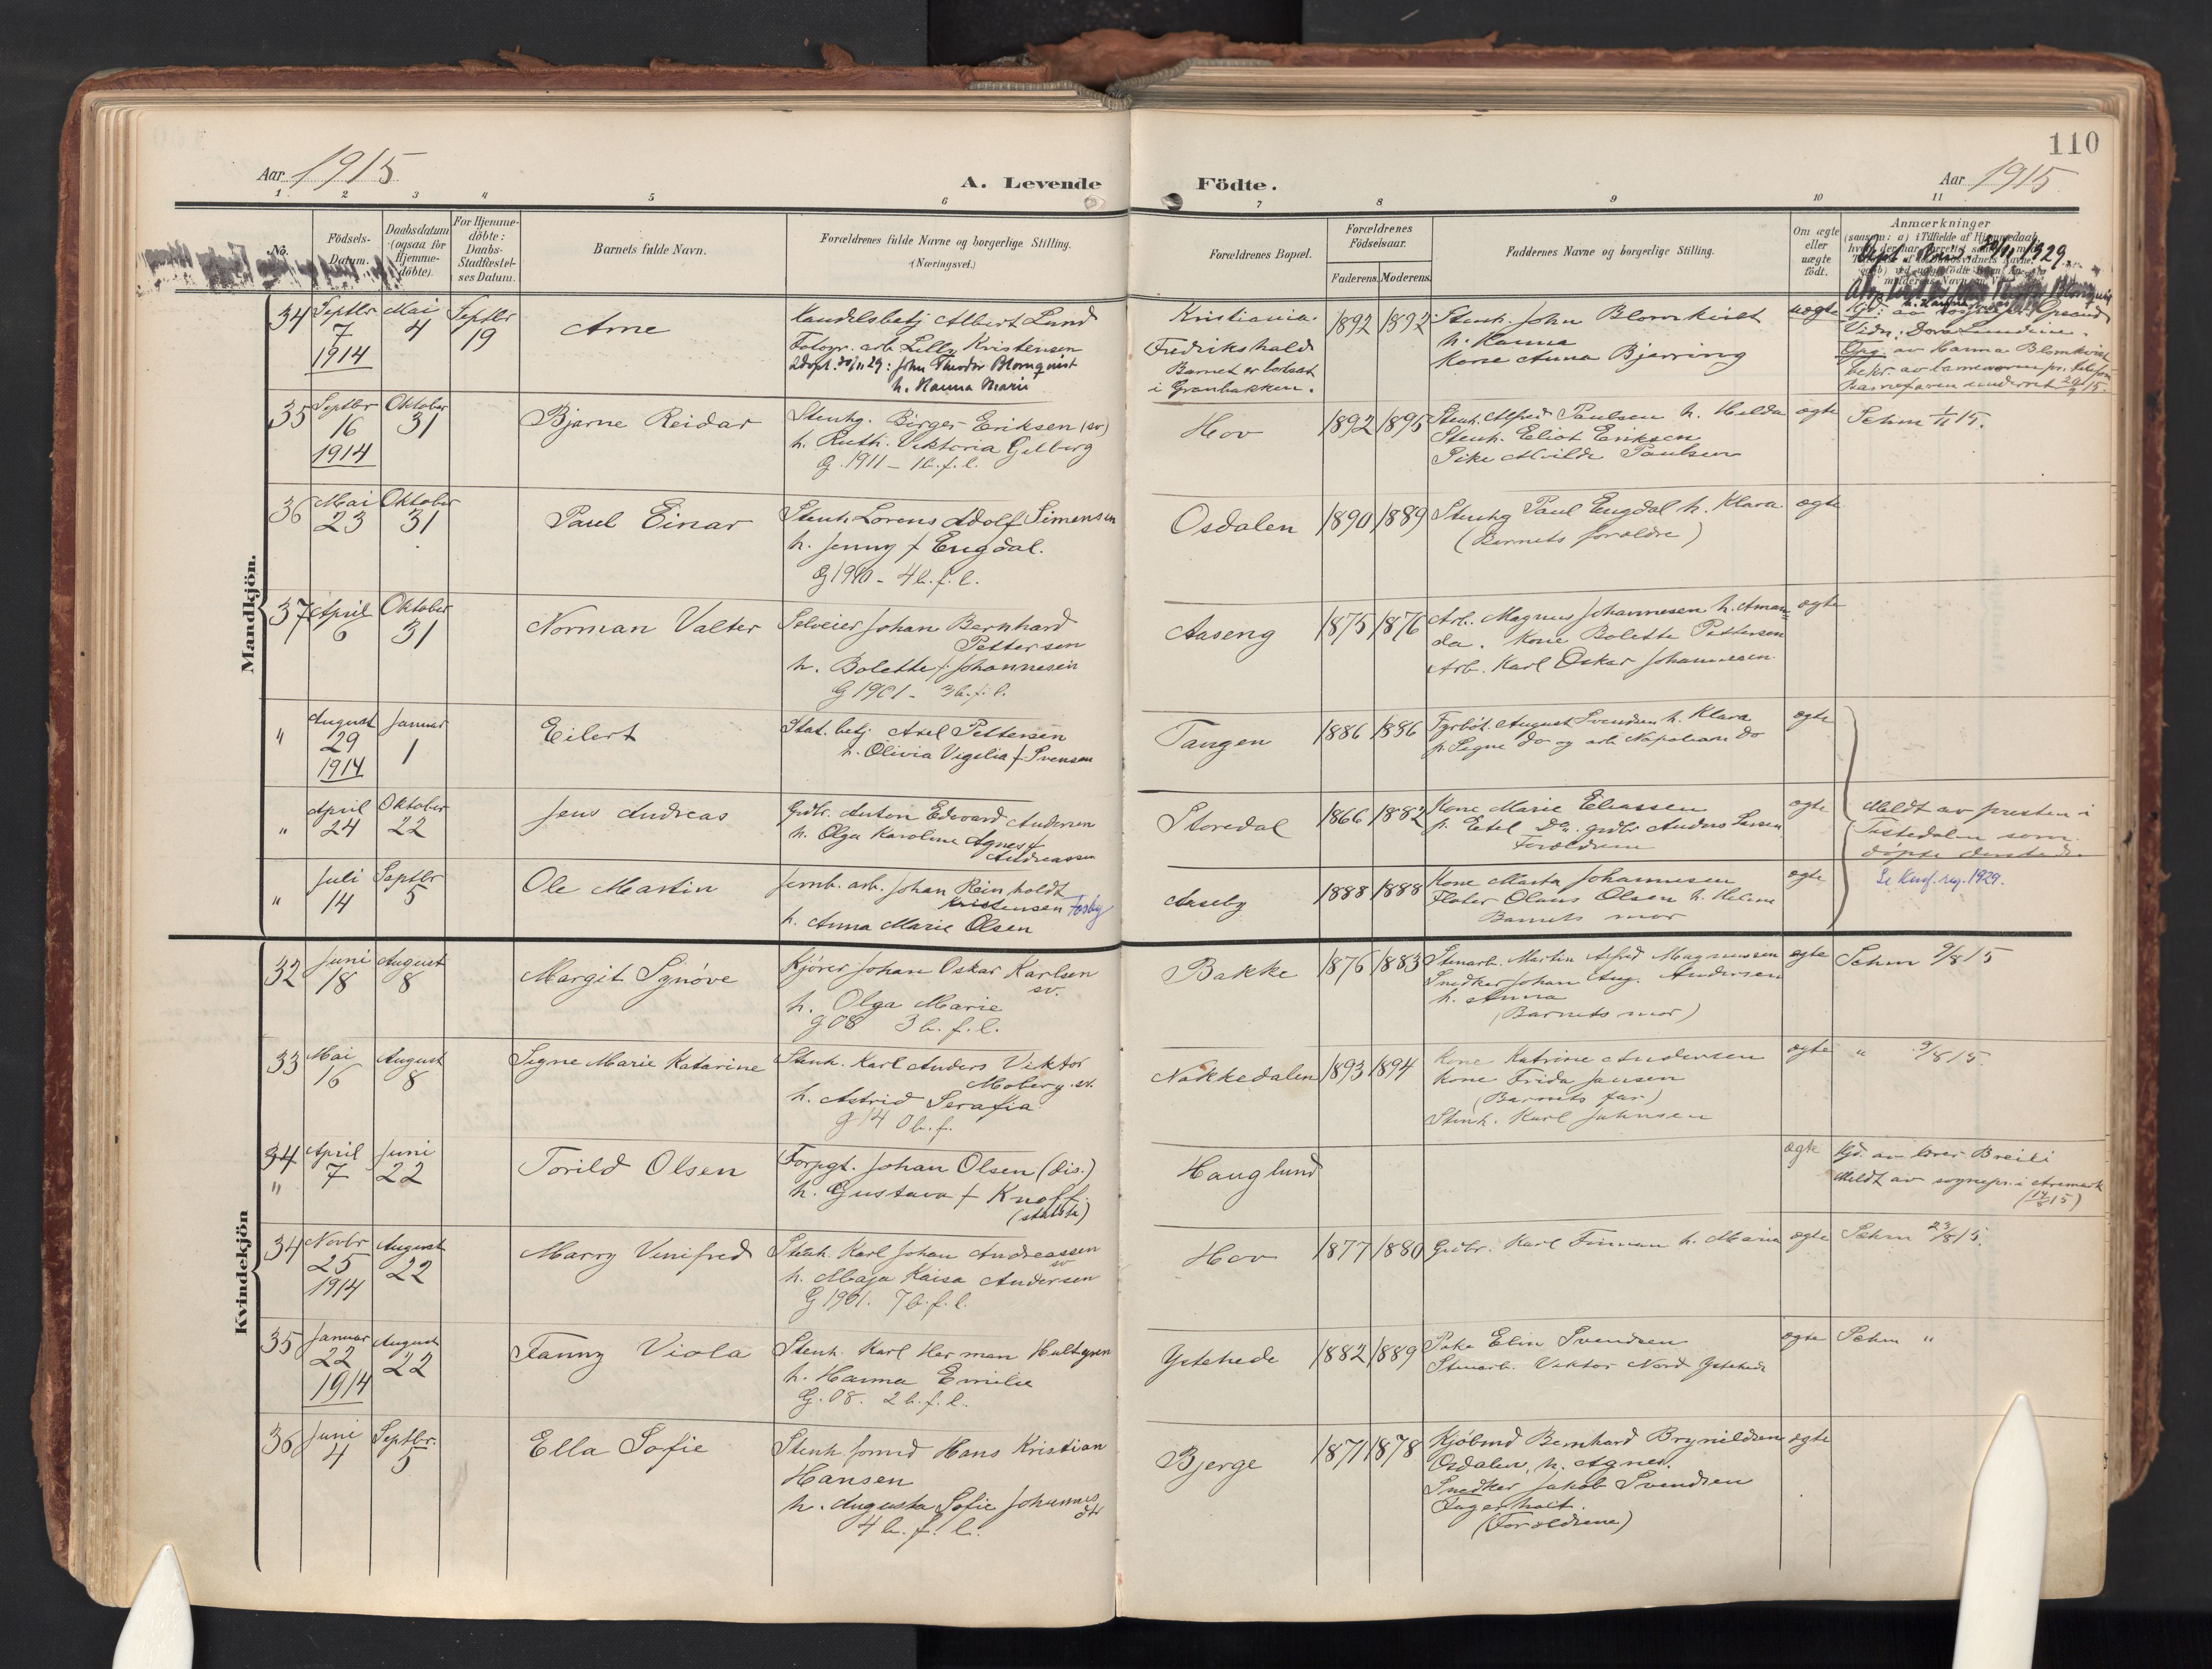 110
Aar 1915
A. Levende
Födte.
Aar 1915
1
2
3
4
5
6
7
8
9
10
11
No.
Födsels-
Datum.
Daabsdatum
(ogsaa for
Hjemme-
döbte).
For Hjemme-
döbte:
Daabs-
Stadfæstel-
ses Datum.
Barnets fulde Navn.
Forældrenes fulde Navne og borgerlige Stilling.
(Næringsvei.)
Forældrenes Bopæl.
Forældrenes
Födselsaar.
Faderens.
Moderens.
Faddernes Navne og borgerlige Stilling.
Om ægte
eller
uægte
födt.
Anmærkninger
Mandkjön.
34
Septbr
7
1914
Mai
4
Septbr
19
Arne
Handelsbetj Albert Lund
Fotogr. arb Lilly Kristensen
Adopt. 30/11 29: John Theodor Blomquist
h. Hanna Marie
Kristiania.
Fredrikshald
Barnet er bortsat
i Granbakken.
1892
1892
Stenh. John Blomkvist
h. Hanna
Kone Anna Bjerring
uægte
Vidn: Dora Lundin
av Hanna Blomkvist
35
Septbr
16
1914
Oktober
31
Bjarne Reidar
Stenhg. Birger Eriksen (sv)
h. Ruth Viktoria Gilberg
G. 1911 - 1 b. f. l.
Hov
1892
1895
Stenh. Alfred Paulsen h. Hilda
Stenh. Eliot Eriksen
Pike Alvilde Paulsen
ægte
Sehm 1/11 15.
36
Mai
23
Oktober
31
Paul Einar
Stenh. Lorens Adolf Simensen
h. Jenny f Engdal.
G 1910 - 4 b. f. l.
Osdalen
1890
1889
Stenhg Paul Engdal h. Klara
(Barnets forældre)
ægte
37
April
6
Oktober
31
Norman Valter
Selveier Johan Bernhard
Pettersen
h. Bolette f. Johannesen
G 1901 - 3 b. f. l.
Aaseng
1875
1876
Arb. Magnus Johannesen h. Aman-
da. Kone Bolette Pettersen
Arb. Karl Oskar Johannesen.
ægte
"
August
29
1914
Januar
1
Eilert
Stat. betj Axel Pettersen
h. Olivia Vigelia f Svensen
Tangen
1886
1886
Fyrböt. August Svendsen h. Klara
p. Signe do og arb Napolean do
ægte
"
April
24
Oktober
22
Jens Andreas
Grdbr. Anton Edevard Andersen
h. Olga Karoline Agnes f
Andreassen
Storedal
1866
1882
Kone Marie Eliassen
p. Estel Do. grdbr Anders Larsen
Forældrene
ægte
Meldt av presten i
Tistedalen som
döpte denstads.
"
Juli
14
Septbr
5
Ole Martin
Jernb. arb. Johan Reinholdt
Kristensen Fosby
h. Anna Marie Olsen
Aaseby
1888
1888
Kone Marta Johannesen
Fløter Olaus Olsen h. Helene
Barnets mor
ægte
Se Konf. reg. 1929.
Kvindekjön
32
Juni
18
August
8
Margit Synöve
Kjörer Johan Oskar Karlsen
sv.
h. Olga Marie
g 08 3 b. f. l.
Bakke
1876
1883
Stenarb. Martin Alfred Magnussen
Snedker Johan Aug. Andersen
h. Anna
(Barnets mor)
ægte
Sehm 9/8 15
33
Mai
16
August
8
Signe Marie Katarine
Stenh. Karl Anders Viktor
Moberg. sv.
h. Astrid Serafia
g 14 0 b. f.
Nokkedalen
1893
1894
Kone Katrine Andersen
Kone Frida Jansen
(Barnets far)
Stenh. Karl Johnsen
ægte
" 9/8 15.
34
"
April
7
Juni
22
Torild Olsen
Forpgt. Johan Olsen (dis.)
h. Gustava f Knoff.
(statsk.)
Hauglund
ægte
Hjd. av lærer Breili
Meldt av sognepr. i Aremark
34
Novbr
25
1914
August
22
Marry Vinifred
Stenh. Karl Johan Andreassen
sv
h. Maja Kaisa Andersen
G 1901. 7 b. f. l.
Hov
1877
1880
Grdbr. Karl Finman h. Maria
ægte
Sehm 23/8 15.
35
Januar
22
1914
August
22
Fanny Viola
Stenh. Karl Herman Hultgren
h. Hanna Emilie
G. 08. 2 b. f. l.
Ystehede
1882
1889
Pike Elin Svendsen
Stenarb. Viktor Nord Ystehede
ægte
Sehm "
36
Juni
4
Septbr.
5
Ella Sofie
Stenh. formd Hans Kristian
Hansen
h. Augusta Sofie Johannes
dtr
4 b. f. l.
Bjerge
1871
1878
Kjöbmd Bernhard Brynildsen
Osdalen, h. Agnes.
Snedker Jakob Svendsen
Fagerholt.
(Forældrene)
ægte